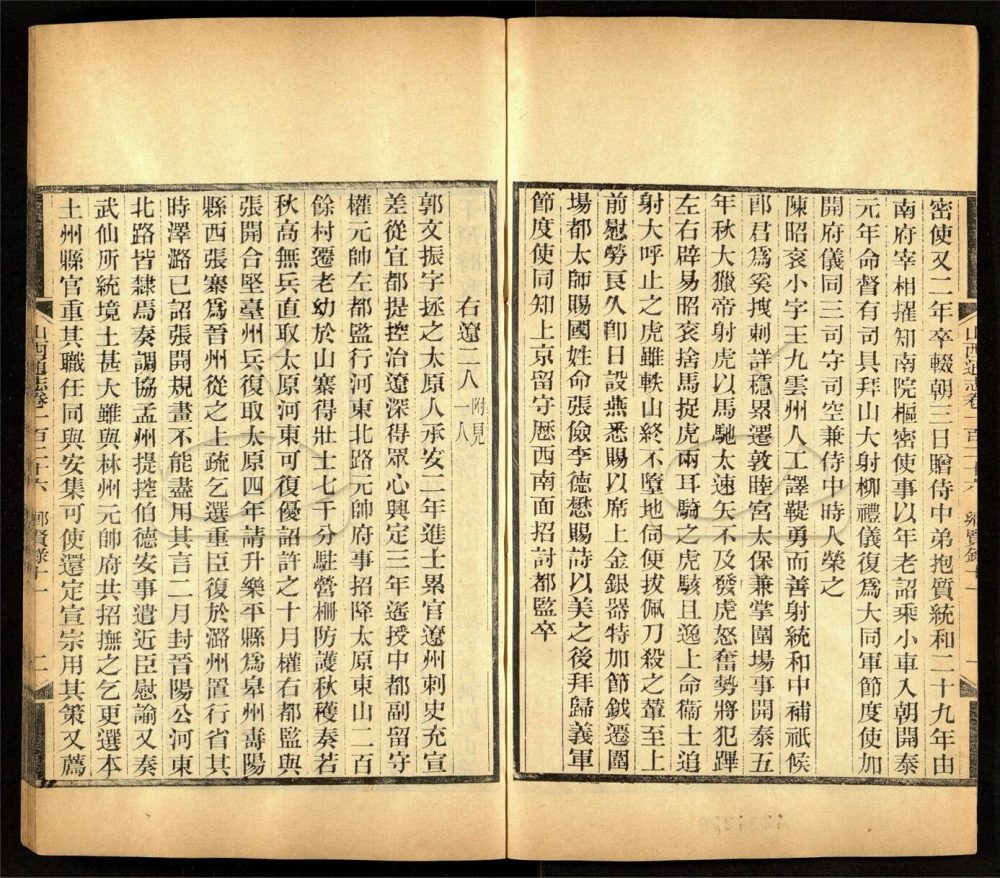 密使又二年卒輟朝三日贈侍中弟抱質統和二十九年由
南府宰相擢知南院樞密使事以年老詔乘小車入朝開泰
元年命督有司具拜山大射柳禮儀復爲大同軍節度使加
開府儀同三司守司空兼侍中時人榮之
陳昭袞小字王九雲州人工譯鞮勇而善射統和中補祇候
郎君爲奚拽剌詳穩累遷敦睦宮太保兼掌圍場事開泰五
年秋大獵帝射虎以馬馳太速矢不及發虎怒奮勢將犯蹕
左右辟易昭袞捨馬捉虎兩耳騎之虎駭且逸上命衞士追
射大呼止之虎雖軼山終不墮地伺便拔佩刀殺之輦至上
前慰勞良久卽日設燕悉賜以席上金銀器特加節鉞遷圍
場都太師賜國姓命張儉李德懋賜詩以美之後拜歸義軍
節度使同知上京留守歷西南面招討都監卒
右遼二人附見一人
郭文振字拯之太原人承安二年進士累官遼州刺史充宣
差從宜都提控治遼深得眾心興定三年遙授中都副留守
權元帥左都監行河東北路元帥府事招降太原東山二百
餘村遷老幼於山寨得壯士七千分駐營柵防護秋穫奏若
秋高無兵直取太原河東可復優詔許之十月權右都監與
張開合堅臺州兵復取太原四年請升樂平縣爲皋州壽陽
縣西張寨爲晉州從之上疏乞選重臣復於潞州置行省其
時澤潞已詔張開規畫不能盡用其言二月封晉陽公河東
北路皆隸焉奏調協孟州提控伯德安事遣近臣慰諭又奏
武仙所統境土甚大雖與林州元帥府共招撫之乞更選本
土州縣官重其職任同與安集可使還定宣宗用其策又薦
山西通志卷一百三十六 鄉賢錄十一 二